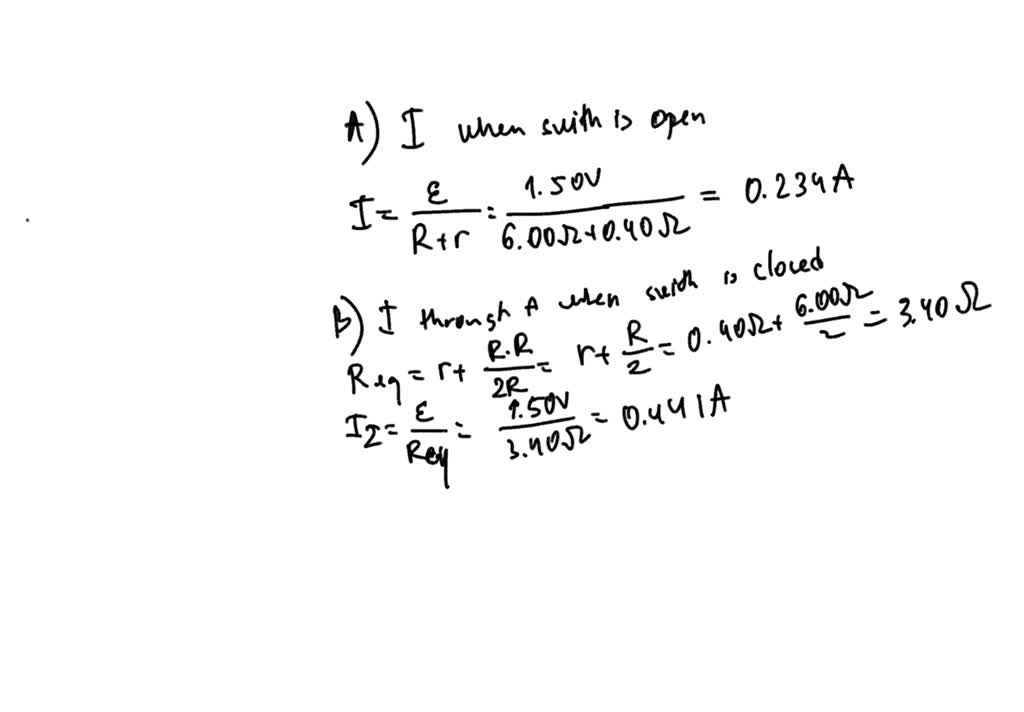 A) I when swith is open
I = ε/(R+r) = 1.50V/(6.00Ω+0.40Ω) = 0.234A
B) I through A when swith is closed
Req = r+ R.R/2R = r+ R/2 = 0.40Ω+ 6.00Ω/2 = 3.40Ω
I2 = ε/Req = 1.50V/3.40Ω = 0.441A